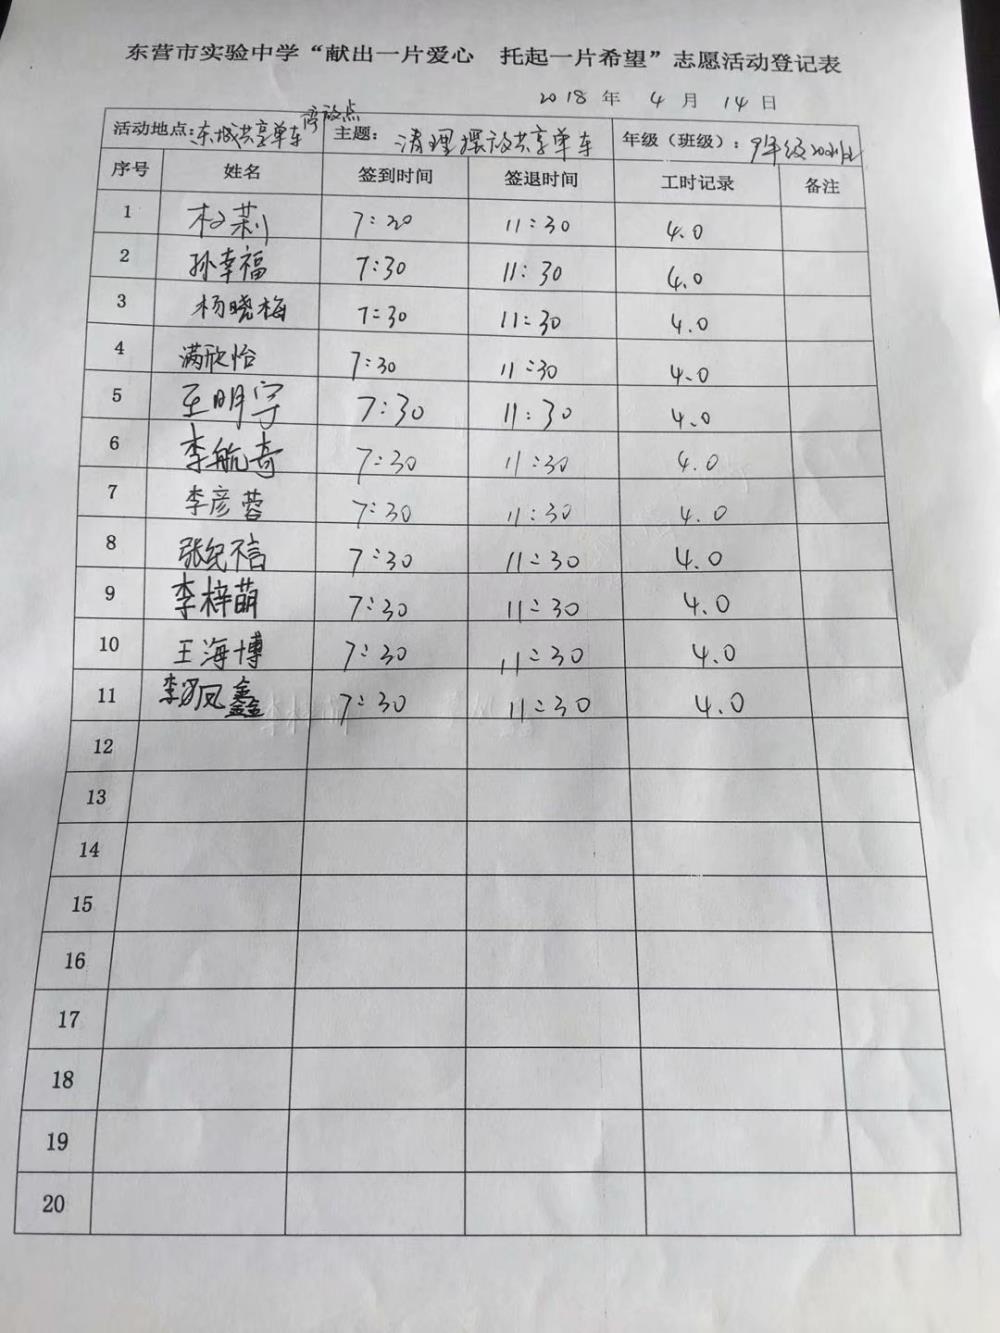 东营市实验中学“献出一片爱心 托起一片希望”志愿活动登记表
2018 年 4 月 14 日
活动地点：东城共享单车停放点 主题：清理摆放共享单车 年级（班级）：9年级
序号 姓名 签到时间 签退时间 工时记录 备注
1 7:20 11:30 4.0
2 孙幸福 7:30 11:30 4.0
3 杨晓梅 7:30 11:30 4.0
4 满欣怡 7:30 11:30 4.0
5 王明宇 7:30 11:30 4.0
6 李航奇 7:30 11:30 4.0
7 李彦蓉 7:30 11:30 4.0
8 张纪言 7:30 11:30 4.0
9 李梓萌 7:30 11:30 4.0
10 王海博 7:30 11:30 4.0
11 李凤鑫 7:30 11:30 4.0
12
13
14
15
16
17
18
19
20